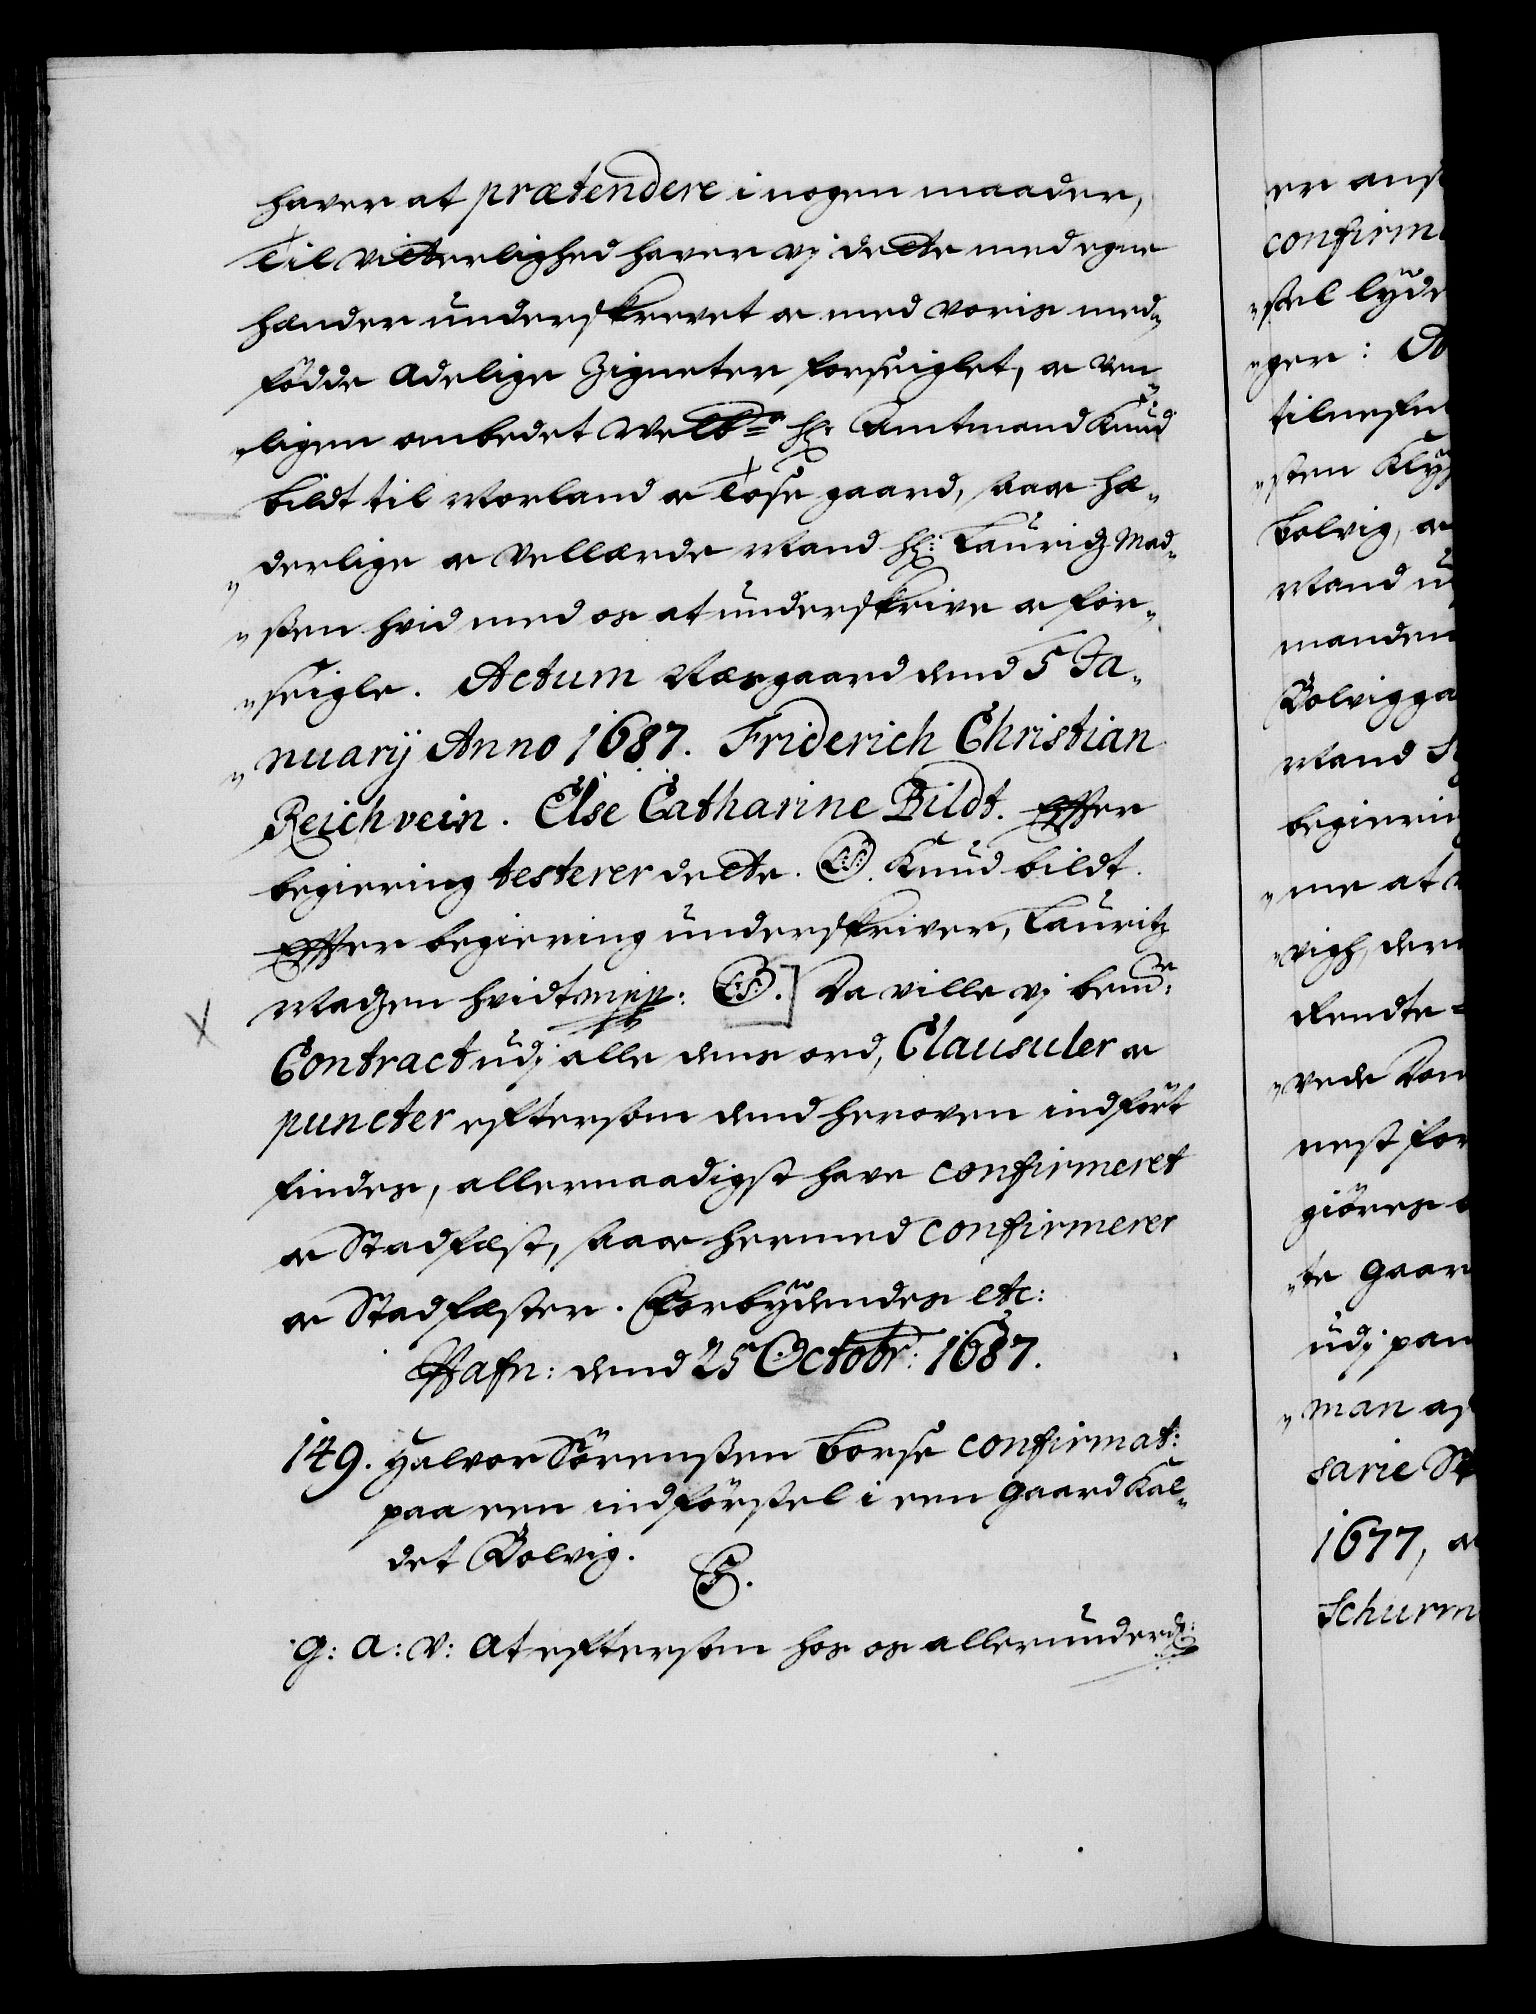 haver at prætendere i nogen maader,
Til vitterlighed haver vj dette med egne
hænder underskrevet og med voris med„
födde Adelige Zigneter forseiglet, og Ven„
„ligen ombedet Velb: Hr: Amtmand Knud
bildt til Morland og Tose gaard, saa og hæ„
„derlige og Vellærde Mand Hr: Lauridz Mad„
„sen hvid med os at underskrive og for„
„seigle. Actum Næsgaard dend 5 Ja„
„nuarij Anno 1687. Friderich Christian
Reichvein. Else Catharine Bildt. Effter
begiering testerer dette. (L.S.) Knud bildt.
Effter begiering underskriver, Lauritz
Madzen hvidt mpp: (L.S.)] Da ville vj bem:te
Contract udj alle dens ord, Clausuler og
puncter eftersom dend heroven indfört
findes, allernaadigst have confirmeret
og Stadfæst, saa og hermed confirmerer
og Stadfæster. Forbydendes etc:
Hafn: dend 25 Octobr: 1687.
149. Halvor Sörensen Borse confirmat:
paa een indförsel i een Gaard Kal„
det Bolvig.
C5.
G: A: V: At eftersom hos os allerunderd:
er ans
confirm
„sel lyde
„ger:
tilnefn
„sten Kly
Bolvig, og
Mand
manden
Bolvigga
Mand
begierin
„me at
„vigh, der
Rendte-
„vede Dom
nest for
giöres
„te Gaar
udj pan
„man af
sarie
1677, og
Schurm